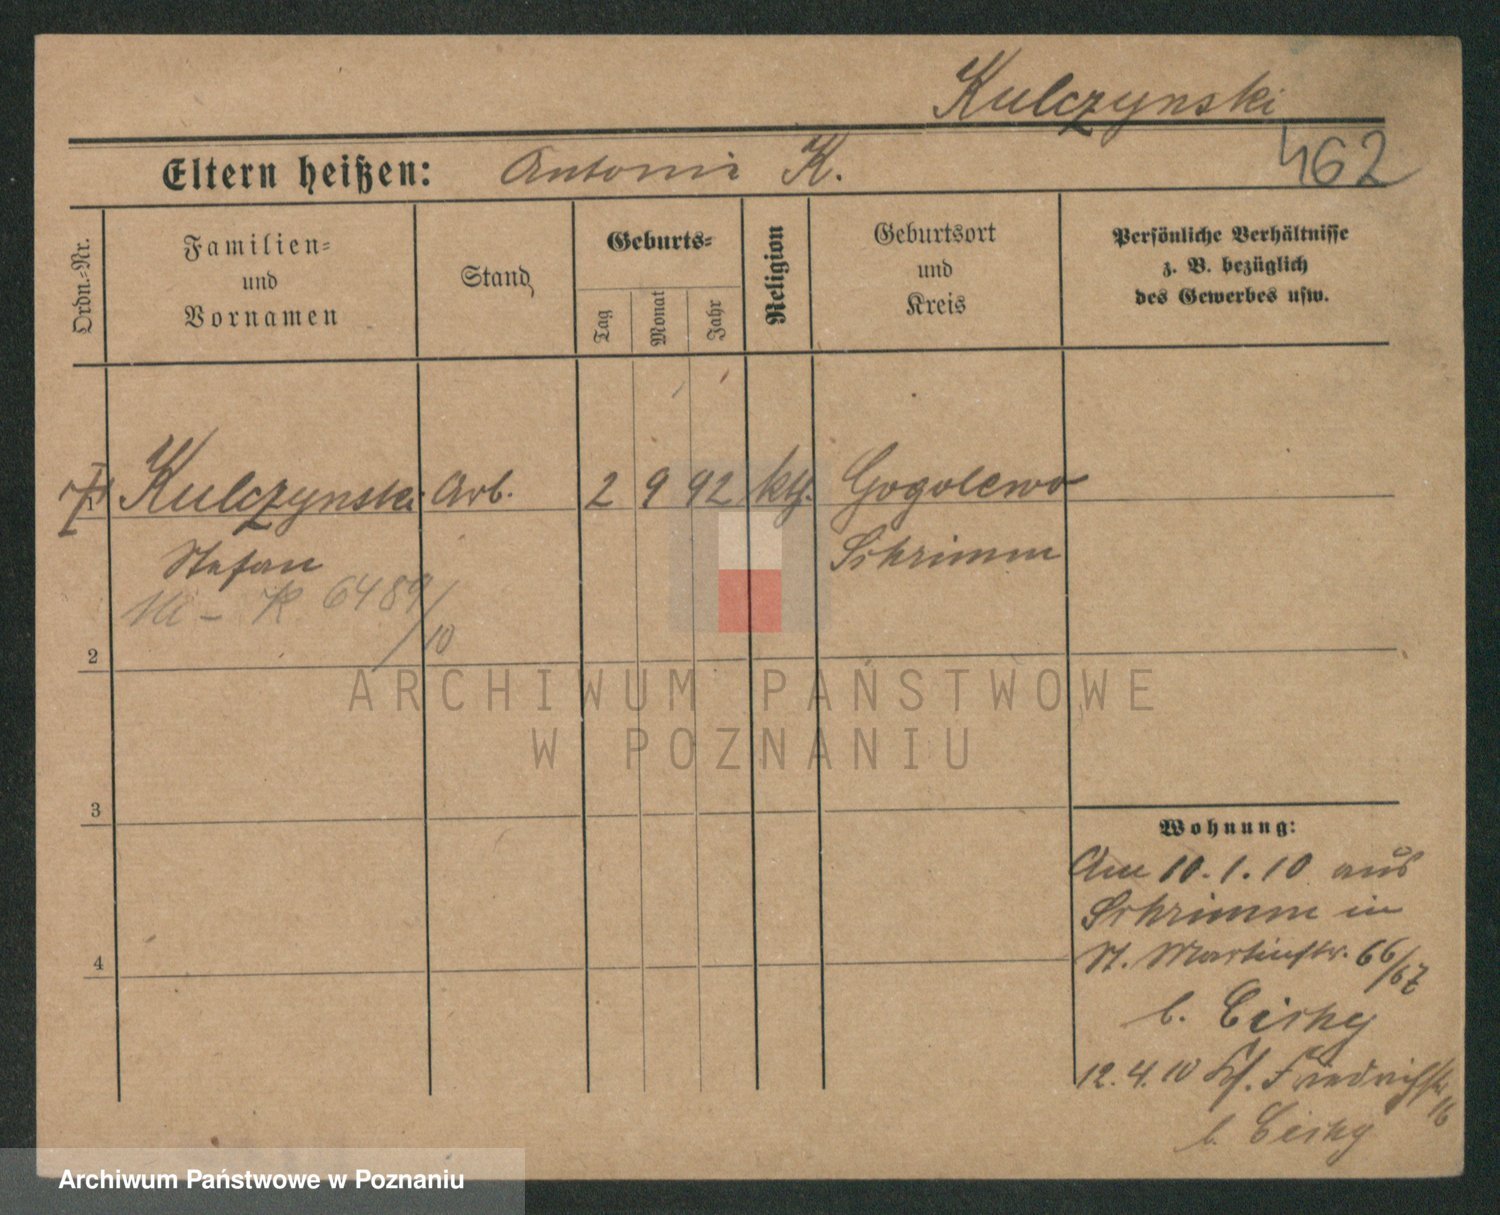 Kulczynski
462
Eltern heißen: Antoni K.
Ordn.-Nr.
Familien-
und
Vornamen
Stand
Geburts-
Tag
Monat
Jahr
Religion
Geburtsort
und
Kreis
Persönliche Verhältnisse
z. B. bezüglich
des Gewerbes usw.
1 Kulczynski Arb. 2 9 92 kth. Gogolewo
Stefan Schrimm
K 6489/10
2
3
4
ARCHIWUM PAŃSTWOWE
W POZNANIU
Wohnung:
Am 10.1.10 aus
Schrimm in
St. Martinstr. 66/67
b. Cichy
12.4.10 Friedrichstr. 16
b. Cichy
Archiwum Państwowe w Poznaniu